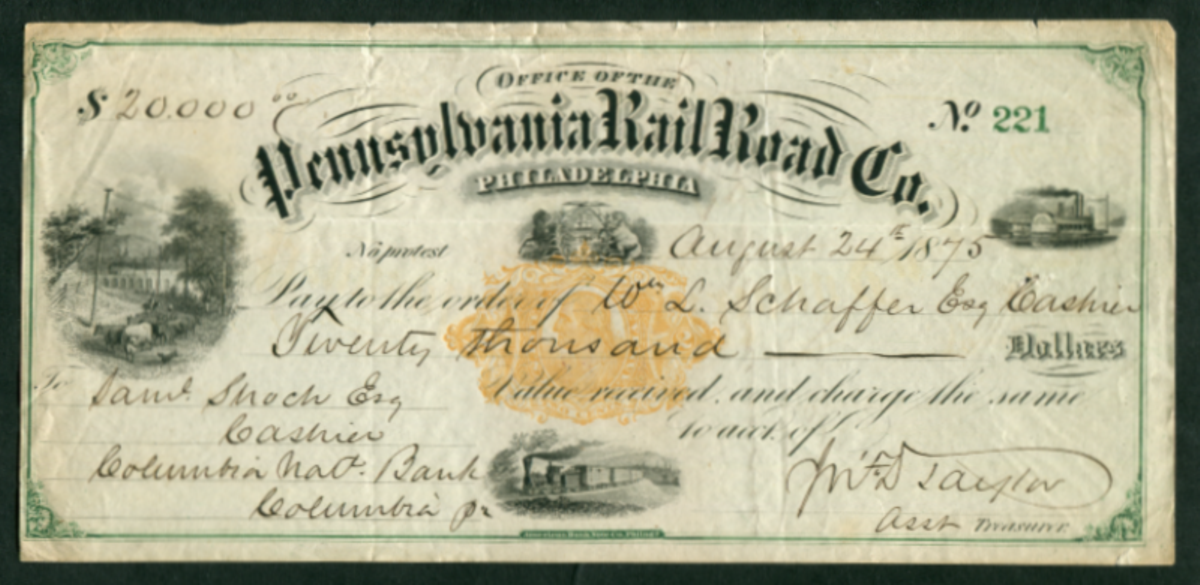 OFFICE OF THE
$ 20.000 00
Pennsylvania Rail Road Co.
No. 221
PHILADELPHIA
No protest
August 24th 1875
Pay to the order of Wm L. Schaffer Esq Cashier
Twenty thousand Dollars
Value received, and charge the same
to acct. of
To Saml. Shoch Esq
Cashier
Columbia Natl. Bank
Columbia Pa
Taylor
Asst Treasurer